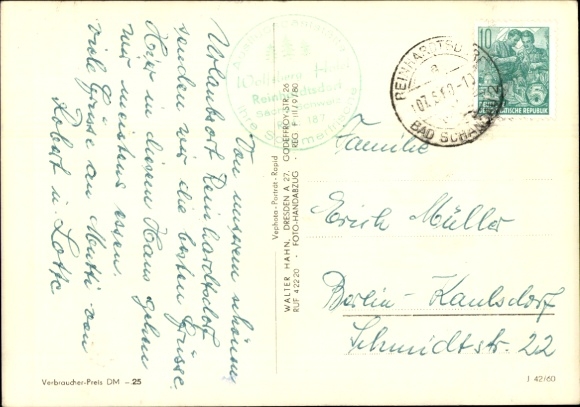 Von unserem schönen
Urlaubsort Reinhardtsdorf
senden wir die besten Grüsse.
Hier in diesem Haus gehen
wir meistens essen.
Viele Grüsse an Mutti von
Robert u. Lotte
Wolfsberg
Reinhardtsdorf
187
Vephota-Porträt-Rapid
WALTER HAHN, DRESDEN A 27, GODEFFROY-STR. 26
RUF 42220 - FOTO-HANDABZUG - REG F III/9/80
REINHARDTSDORF
BAD SCHANDAU
10
DEUTSCHE DEMOKRATISCHE REPUBLIK
5
Familie
Erich Müller
Berlin-Kaulsdorf
Schmidtstr. 22
Verbraucher-Preis DM -.25
J 42/60